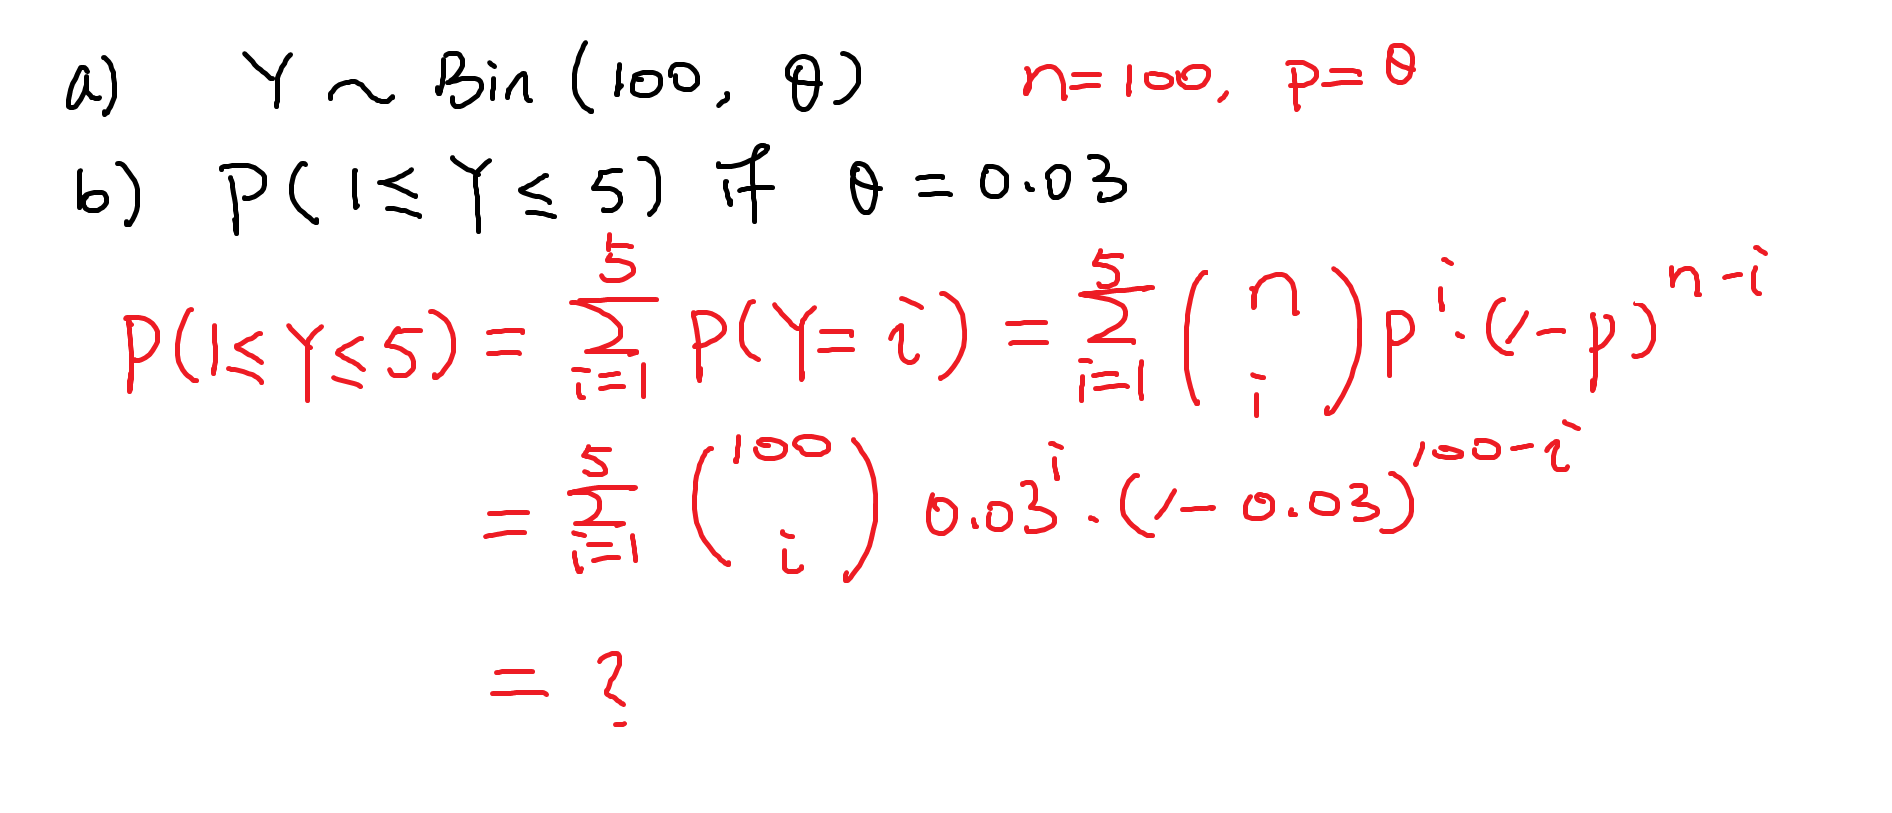 a) Y ~ Bin (100, θ) n=100, p=θ
b) P(1≤Y≤5) if θ=0.03
P(1≤Y≤5) = \sum_{i=1}^{5} P(Y=i) = \sum_{i=1}^{5} \binom{n}{i} p^{i}·(1-p)^{n-i}
= \sum_{i=1}^{5} \binom{100}{i} 0.03^{i}·(1-0.03)^{100-i}
= ?